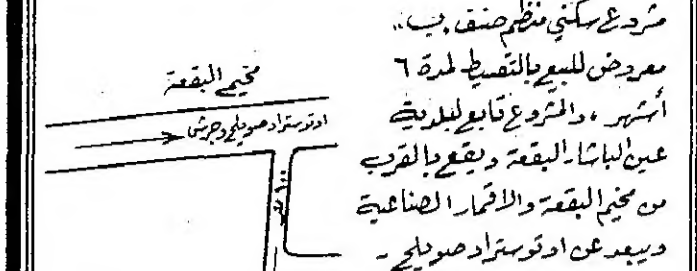 مشروع سكني منظم صنف "ب"
معروض للبيع بالتقسيط لمدة ٦
أشهر، والمشروع تابع لبلدية
عين الباشا/البقعة ويقع بالقرب
من مخيم البقعة والاقمار الصناعية
ويبعد عن اوتوستراد صويلح -
مخيم البقعة
اوتوستراد صويلح وجرش
١٠٠ متر